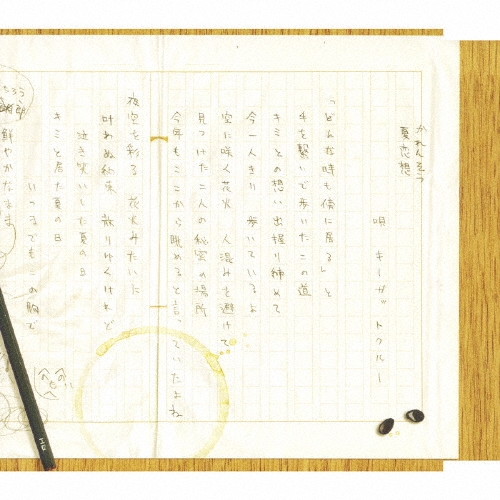 かれんそう
夏恋想
唄 キーザットクルー
「どんな時も傍に居る」と
手を繋いで歩いたこの道
キミとの想い出握り締めて
今一人きり 歩いているよ
空に咲く花火 人混みを避けて
見つけた二人の秘密の場所
今年もここから眺めると言っていたよね
夜空を彩る 花火みたいに
叶わぬ約束 散りゆくけれど
泣き笑いした夏の日
キミと居た夏の日
いつまでもこの胸で
鮮やかなまま